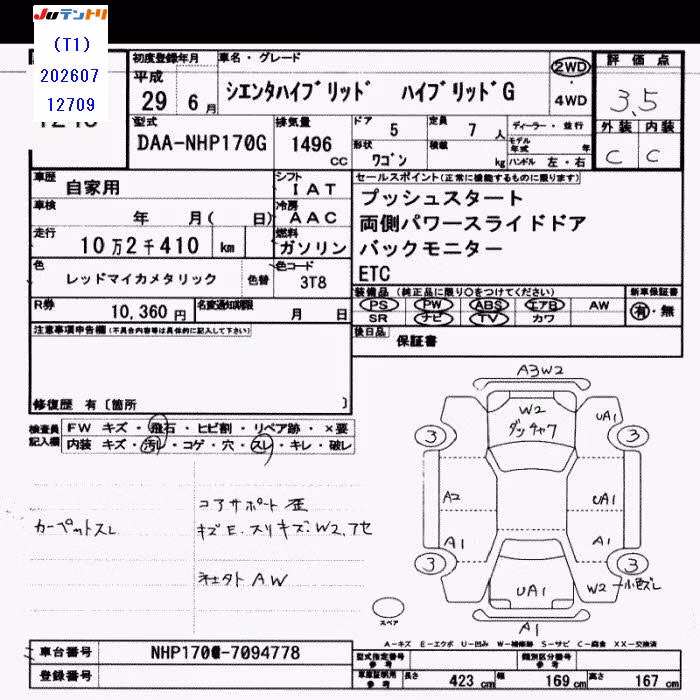 JUテントリ
(T1)
202607
12709
初度登録年月
平成
29 6月
車名・グレード
シエンタハイブリッド ハイブリッドG
2WD
・
4WD
評価点
3.5
外装 内装
C C
型式
DAA-NHP170G
排気量
1496
CC
ドア 5
定員 7 人
形状 ワゴン
積載 kg
ディーラー・並行
モデル年式 年
ハンドル 左・右
車歴
自家用
シフト
IAT
車検
年 月( 日)
冷房
AAC
走行
10万2千410 km
燃料
ガソリン
色
レッドマイカメタリック
色替
色コード
3T8
R券
10,360 円
名変通知期限
月 日
セールスポイント(正常に機能するものに限ります)
プッシュスタート
両側パワースライドドア
バックモニター
ETC
装備品(純正品に限り○をつけてください)
PS PW ABS エアB AW
SR ナビ TV カワ
新車保証書
有・無
後日品
保証書
注意事項申告欄(不具合内容等は具体的に記入して下さい)
修復歴 有〔箇所 〕
検査員記入欄
FW キズ・飛石・ヒビ割・リペア跡・×要
内装 キズ・汚れ・コゲ・穴・スレ・キレ・破レ
カーペットスレ
コアサポート歪
キズE.スリキズ.W2.アセ
社外AW
A3W2
W2
ダッチャク
UA1
3
3
A2
UA1
A1
A1
3
3
UA1
W2
小色ズレ
A1
スペア
A-キズ E-エクボ U-凹み W-補修跡 S-サビ C-腐食 XX-交換済
車台番号
NHP170-7094778
登録番号
型式指定番号
参考
類別区分番号
参考
車庫証明用
参考
長さ 423 cm
幅 169 cm
高さ 167 cm